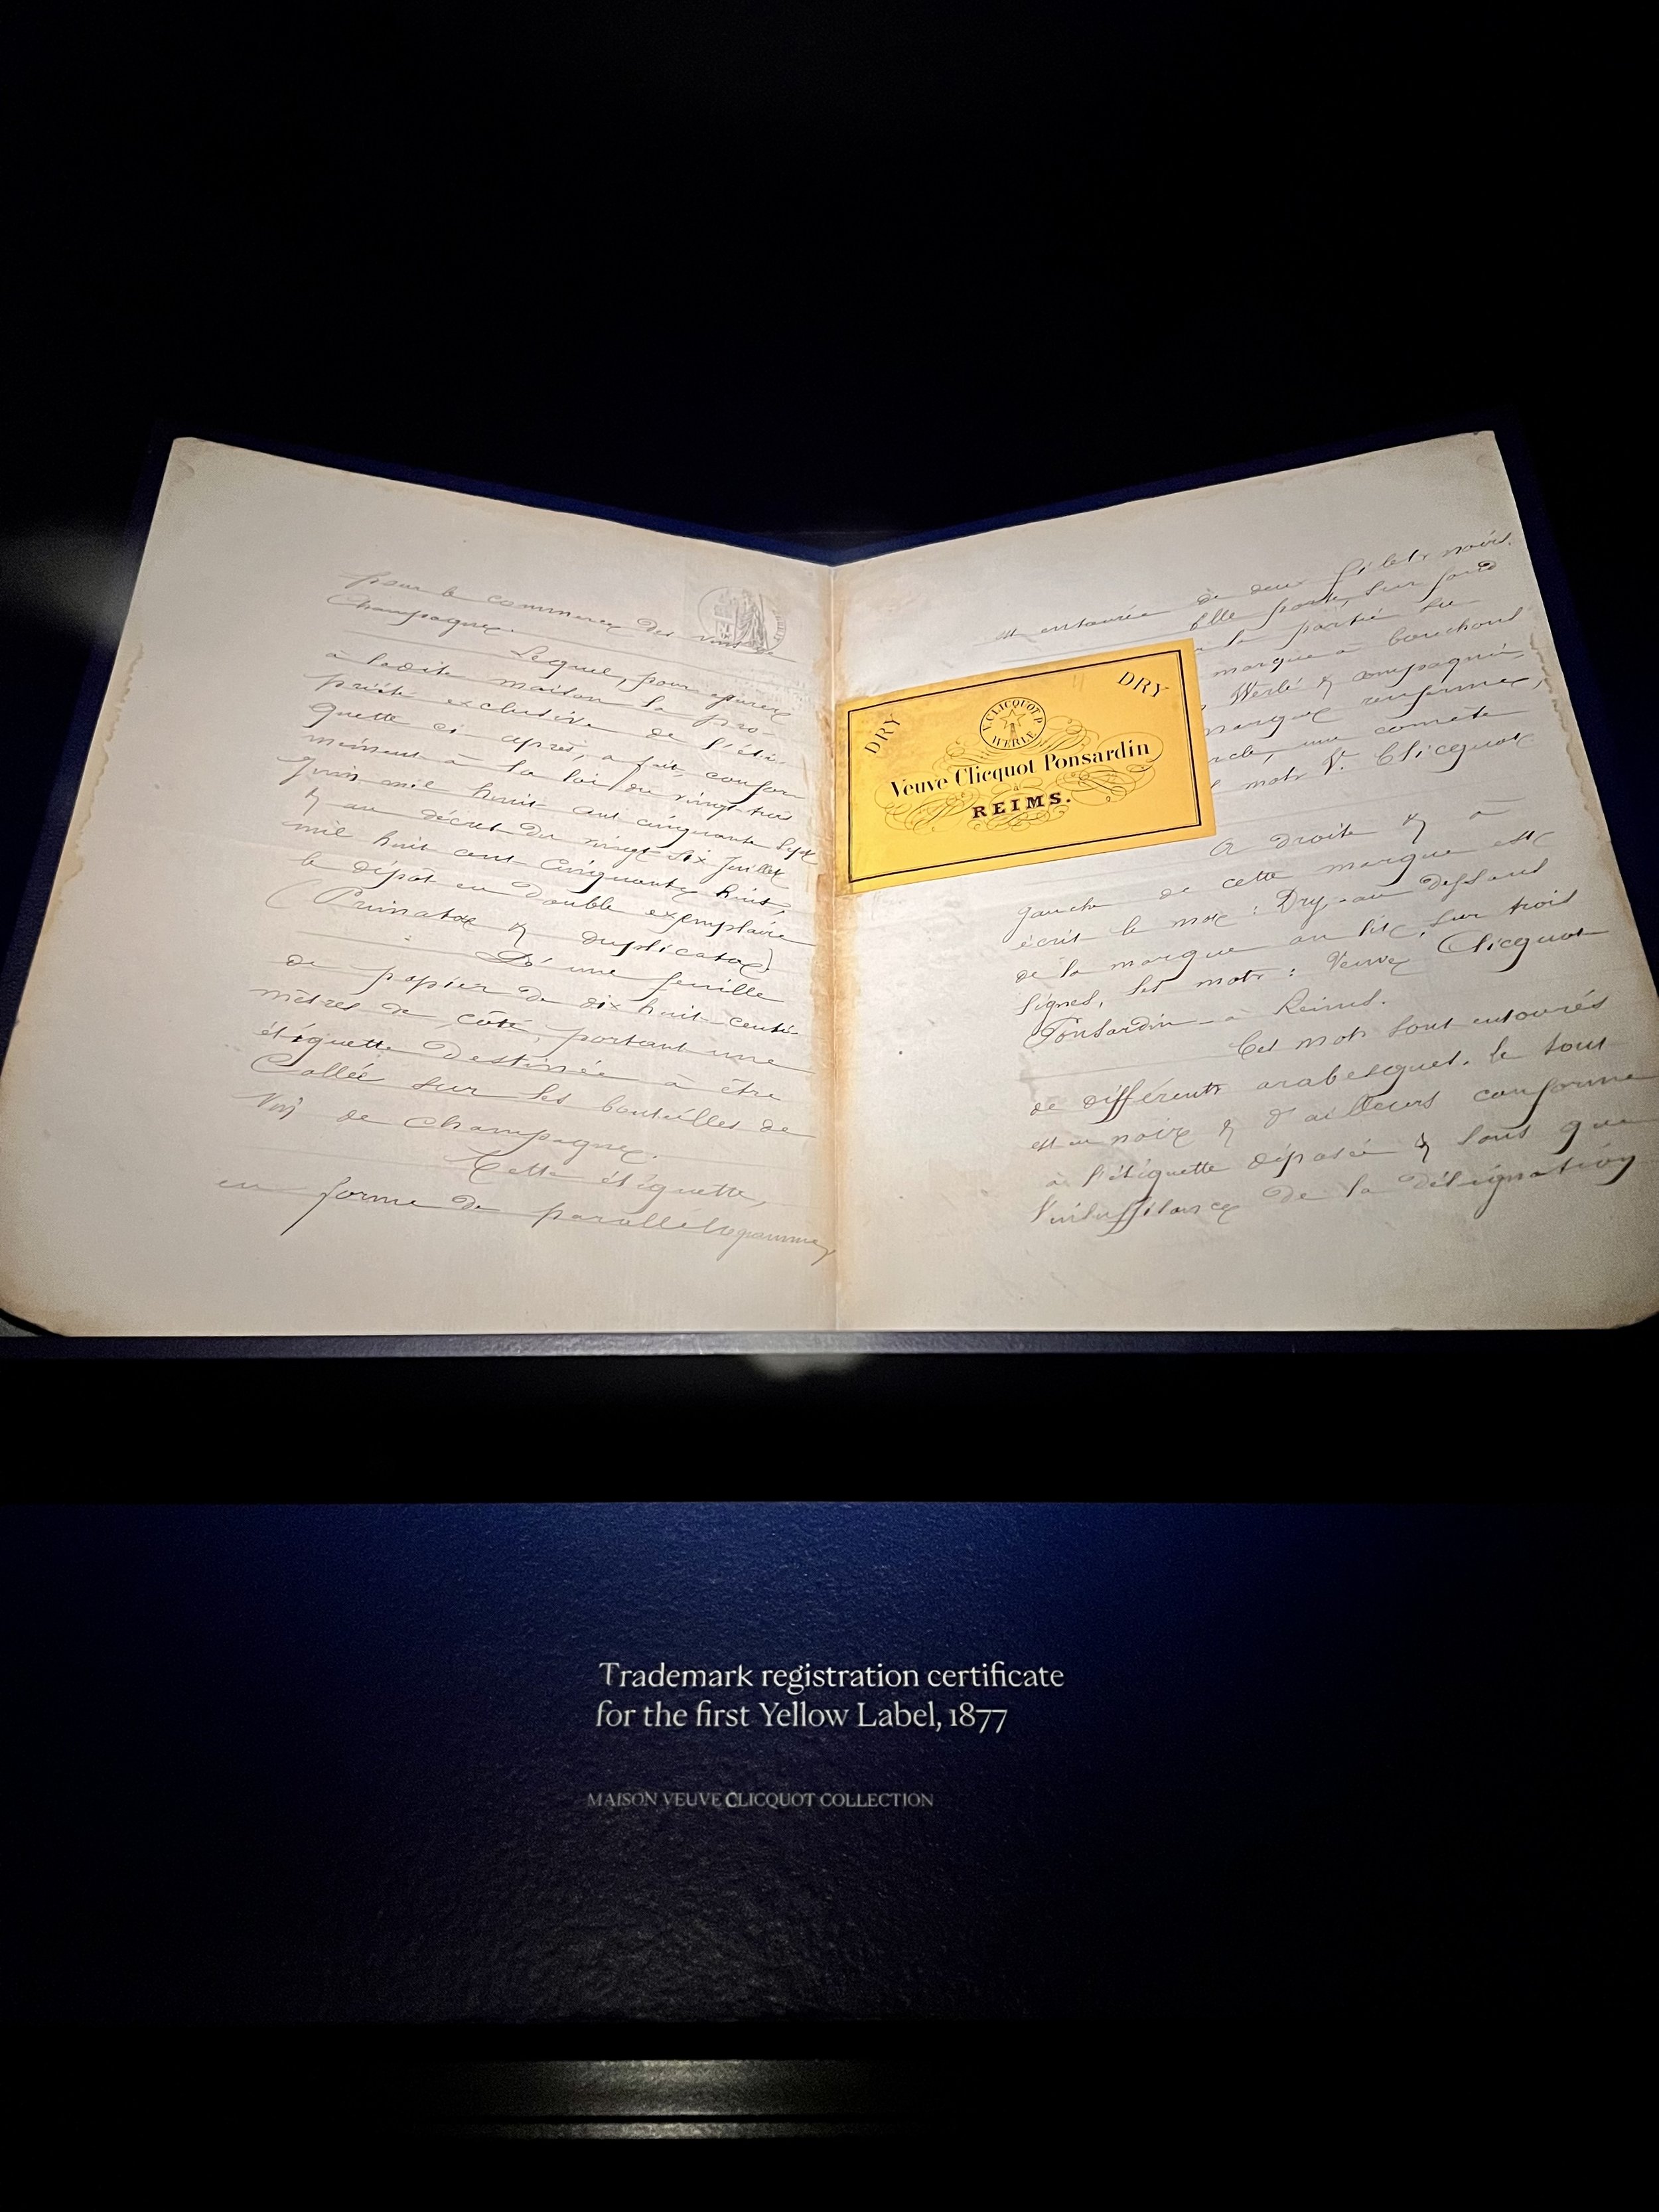 pour le commerce des vins de
Champagne.
Lequel, pour assurer
à ladite maison la pro-
priété exclusive de l'éti-
quette ci après, a fait, confor
mément à la loi du vingt-trois
Juin mil huit cent cinquante sept
& au décret du vingt six Juillet
mil huit cent cinquante huit,
le dépôt en double exemplaire
(Primata & duplicata)
D'une feuille
de papier de dix huit centi-
mètres de côté, portant une
étiquette destinée à être
Collée sur les bouteilles de
Vin de Champagne.
Cette étiquette,
en forme de parallélogramme,
est entourée de deux filets noirs.
Elle porte, sur fond
la partie su
marque à bouchons
Werlé & compagnie,
marque renferme,
une comète
mots Ve. Clicquot
DRY
DRY
V. CLICQUOT P.
WERLE
Veuve Clicquot Ponsardin
à
REIMS.
A droite & à
gauche de cette marque est
écrit le mot : Dry, au dessous
de la marque on lit, sur trois
lignes, les mots : Veuve Clicquot
Ponsardin - à Reims.
Ces mots sont entourés
de différents arabesques. le tout
est en noir & d'ailleurs conforme
à l'étiquette déposée & sans que
l'insuffisance de la désignation
Trademark registration certificate
for the first Yellow Label, 1877
MAISON VEUVE CLICQUOT COLLECTION